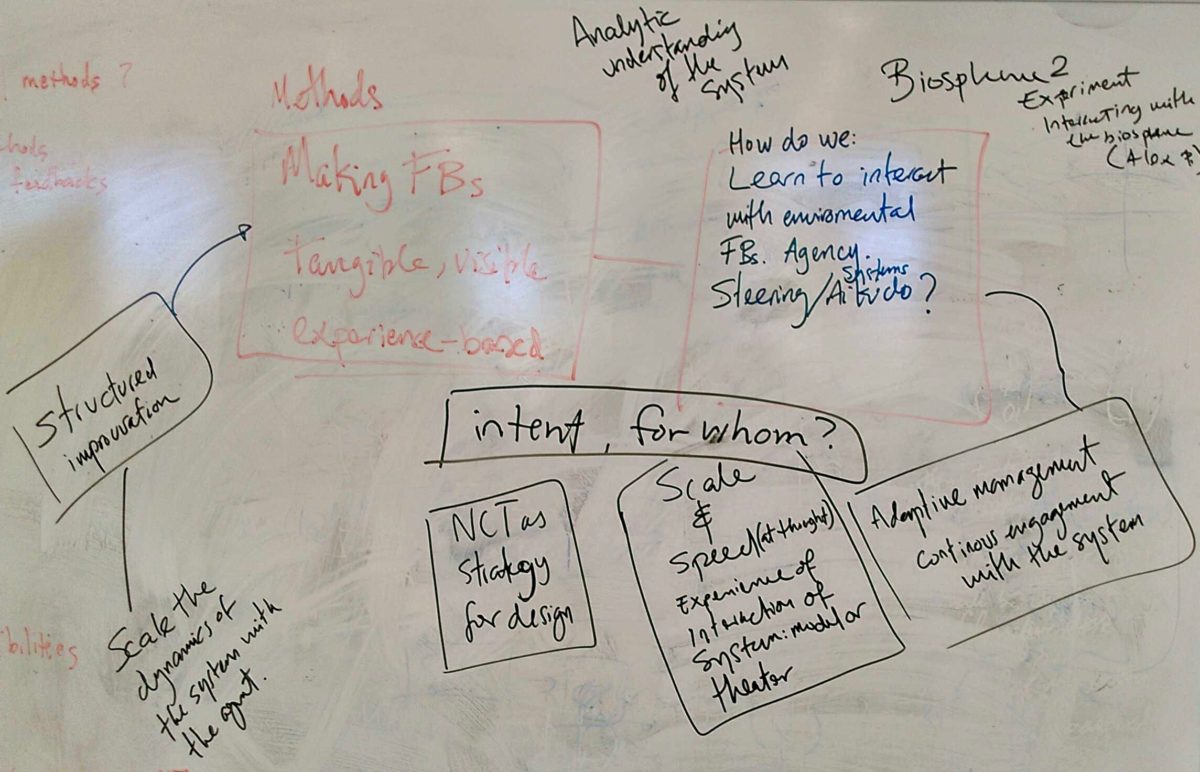 methods ?
feedbacks
bilities
Methods
Making FBs
tangible, visible
experience-based
Analytic
understanding
of the
system
Biosphere 2
Expriment
Interacting with
the biosphere
(Alex
How do we:
Learn to interact
with enviromental
FBs. Agency.
Systems
Steering/Aikido?
Structured
improvration
Scale the
dynamics of
the system with
the agent.
intent, for whom?
NCT as
strategy
for design
Scale
&
Speed (at thought)
Experience of
Intraction of
System: modul or
theater
Adaptive management
continous engagement
with the system